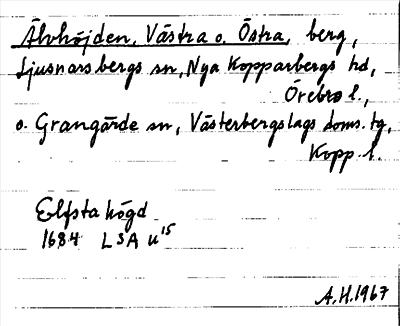 Älvhöjden, Västra o. Östra, berg,
Ljusnarsbergs sn, Nya Kopparbergs hd,
Örebro l.,
o. Grangärde sn, Västerbergslags doms. tg,
Kopp. l.
Elfsta högd
1684 LSA u15
A.H. 1967